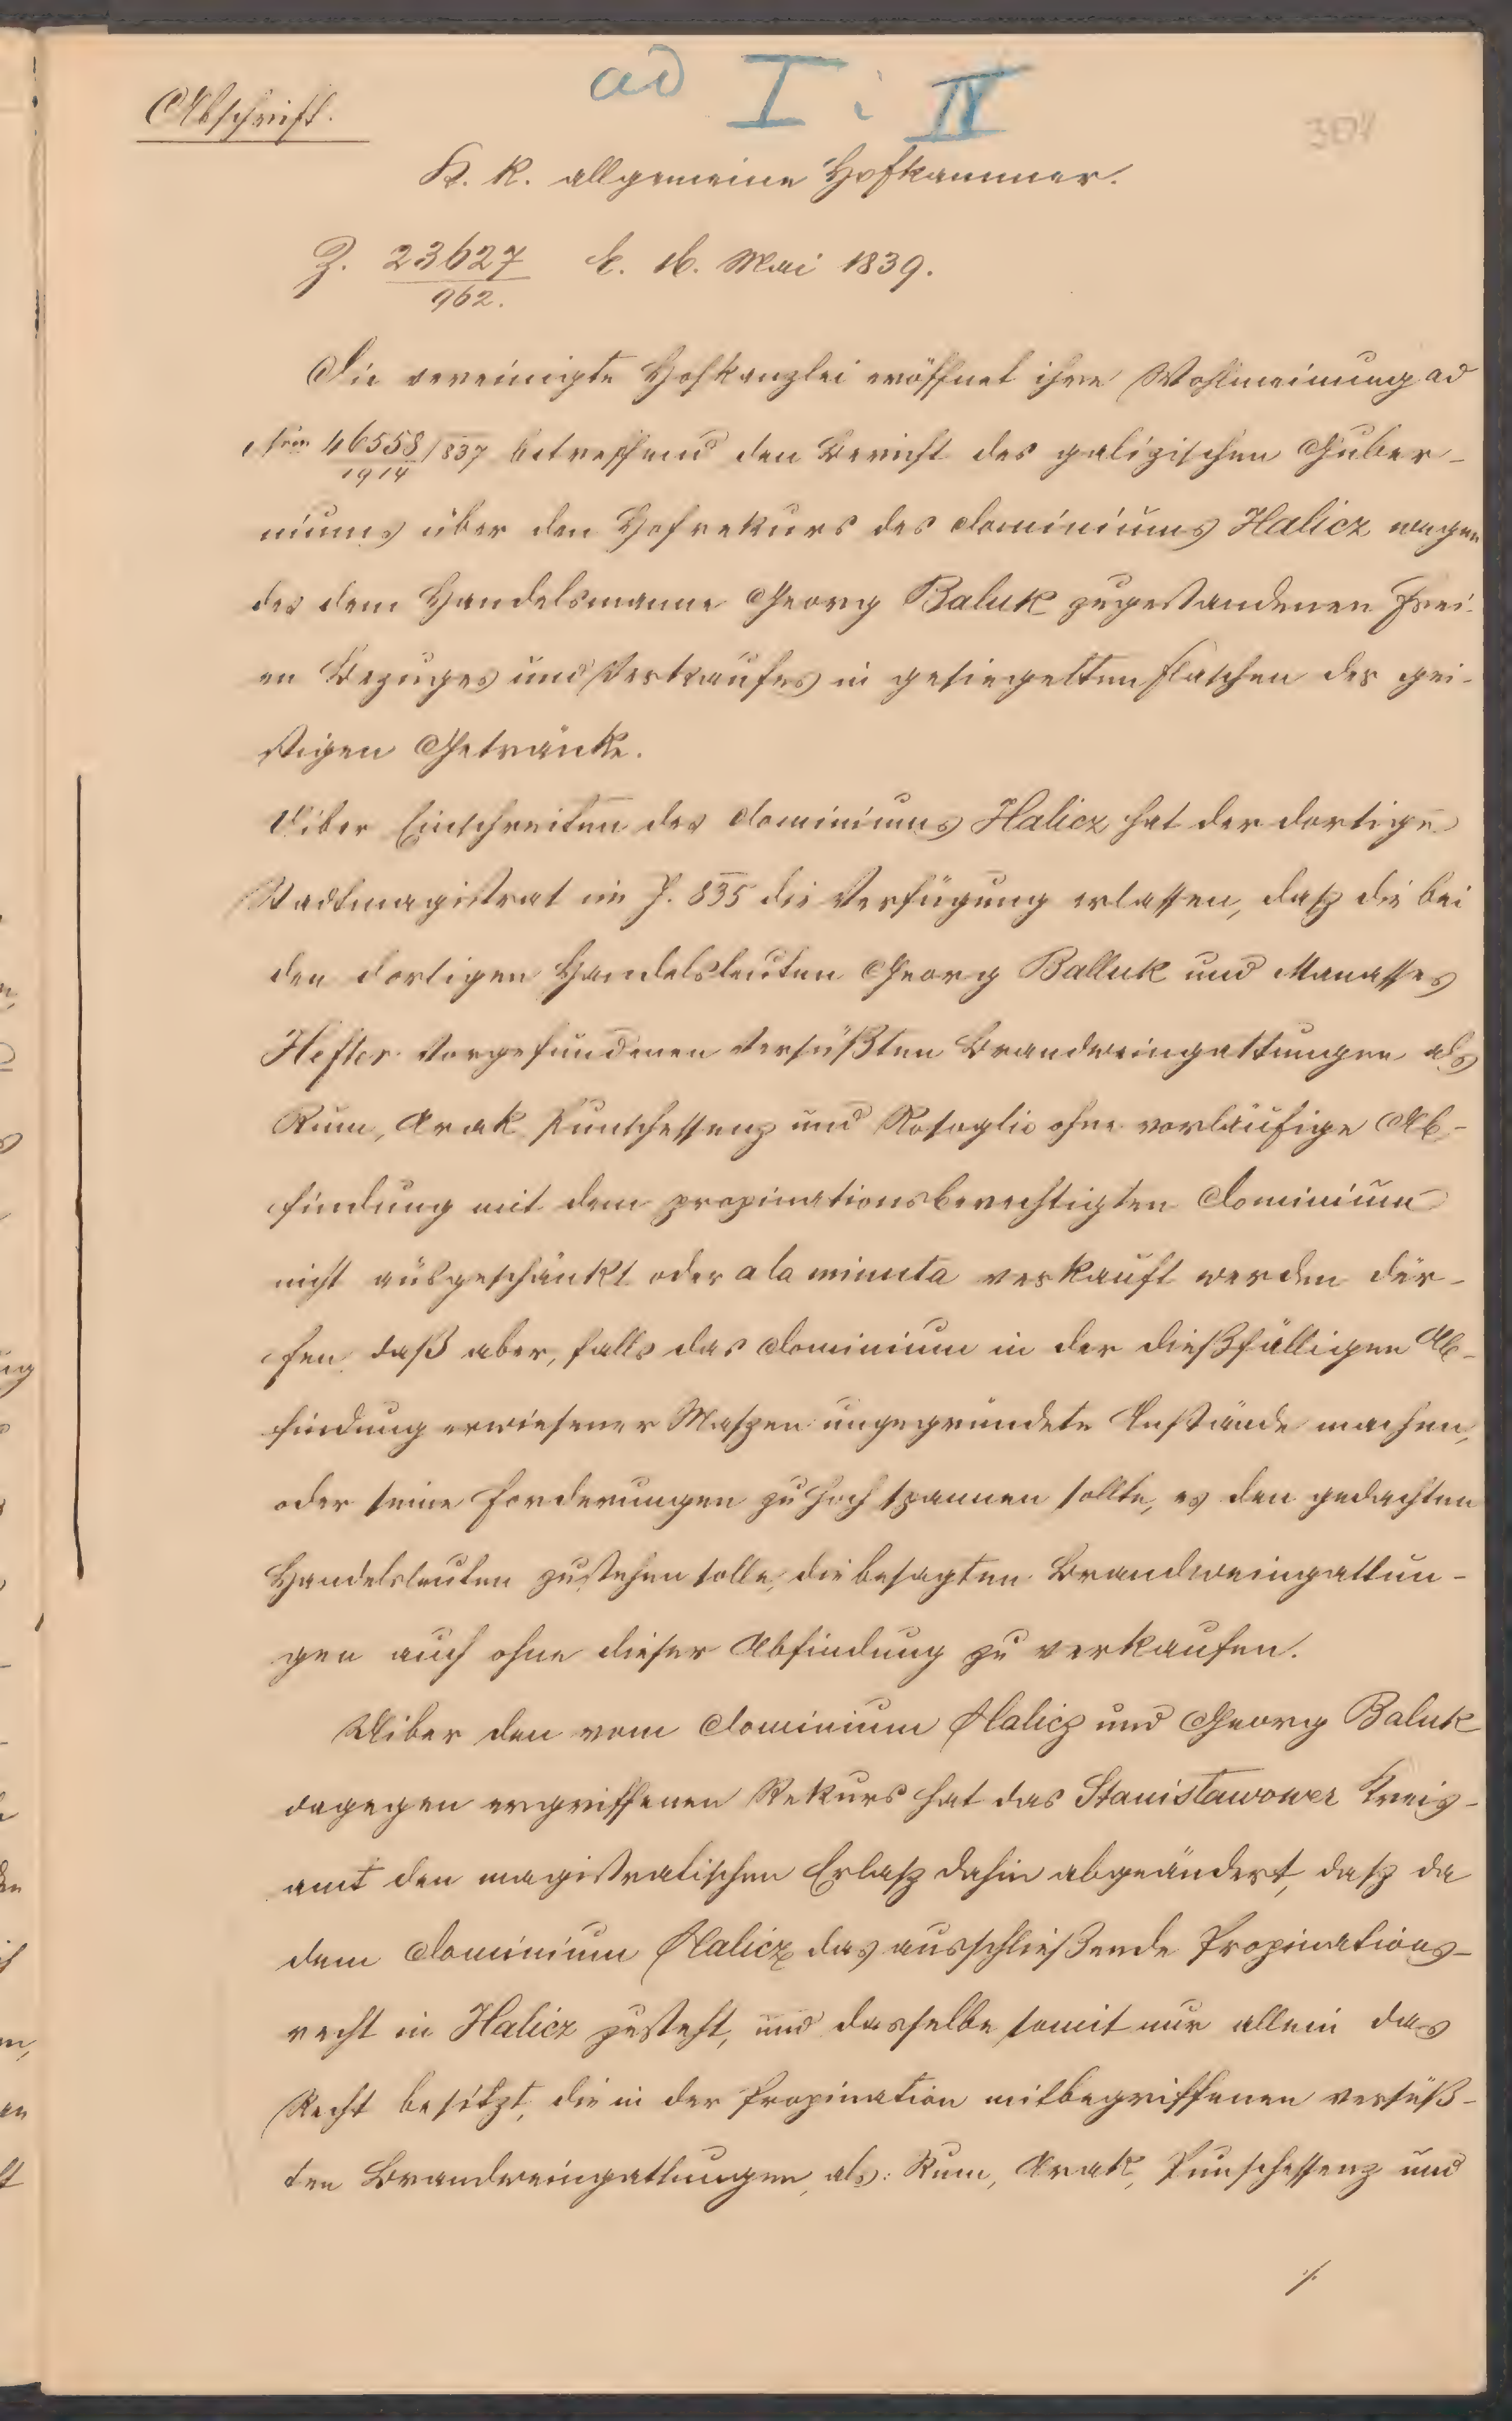 ad I i IV
Abschrift.
K. K. allgemeine Hofkammer.
Z. 23627/962. E. 16. Mai 1839.
Die vereinigte Hofkanzlei eröffnet ihre Wohlmeinung ad
Nrm 46558/1914/837 betreffend den Bericht des galizischen Guber-
niums über den Hofrekurs des Dominiums Halicz wegen
des dem Handelsmanne Georg Baluk zugestandenen Frei-
en Bezuges und Verkaufes in gesiegelten Flaschen der gei-
stigen Getränke.
Uiber Einschreiten des Dominiums Halicz hat der dortige
Stadtmagistrat im J. 835 die Verfügung erlassen, dasz die bei
den dortigen Handelsleuten Georg Balluk und Manasses
Hefter vorgefundenen versüßten Brandweingattungen als
Rum, Arak Punschessenz und Rosoglio ohne vorläufige Ab-
findung mit dem propinationsberechtigten Dominium
nicht ausgeschänkt oder a la minuta verkauft werden dür-
fen, daß aber, falls das Dominium in der dießfälligen Ab-
findung erwiesener Maszen ungegründete Anstände machen,
oder seine Forderungen zu hoch spannen sollte, es den gedachten
Handelsleuten zustehen solle, die besagten Brandweingattun-
gen auch ohne dieser Abfindung zu verkaufen.
Uiber den vom Dominium Halicz und Georg Baluk
dagegen ergriffenen Rekurs hat das Stanisławower Kreis-
amt den magistratischen Erlasz dahin abgeändert, dasz da
dem Dominium Halicz das ausschließende Propinations-
recht in Halicz zusteht, und dasselbe somit nur allein das
Recht besitzt, die in der Propination mitbegriffenen versüß-
ten Brandweingattungen, als: Rum, Arak, Punschessenz und
./.